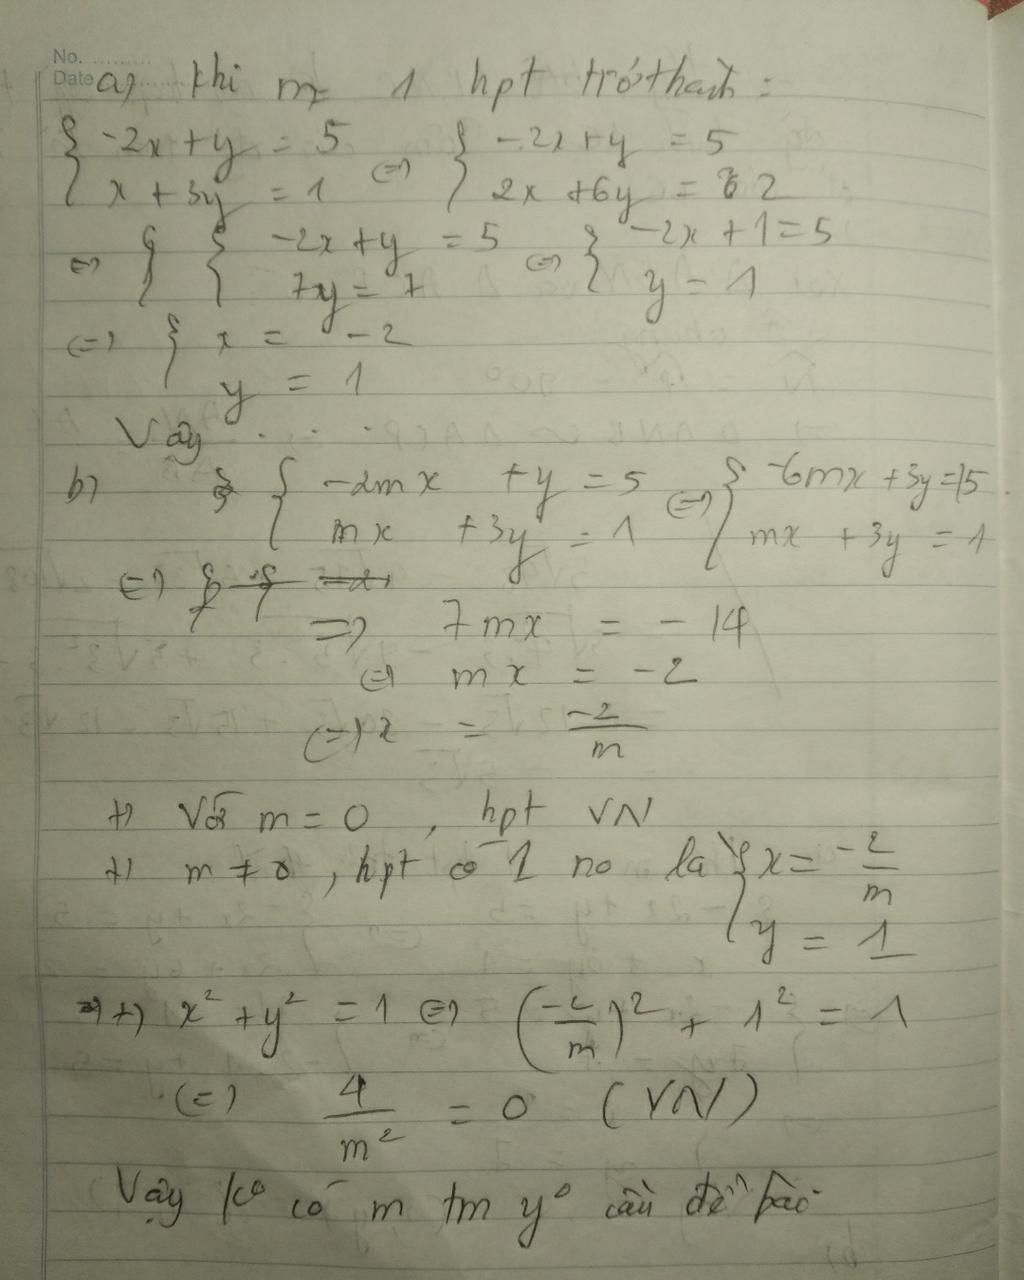 No. ............
Date a) khi m = 1 hpt trở thành :
{ -2x + y = 5 ; x + 3y = 1 <=> { -2x + y = 5 ; 2x + 6y = 2
<=> { -2x + y = 5 ; 7y = 7 <=> { -2x + 1 = 5 ; y = 1
<=> { x = -2 ; y = 1
Vậy . . .
b) { -2mx + y = 5 ; mx + 3y = 1 <=> { -6mx + 3y = 15 ; mx + 3y = 1
<=>
=> 7mx = -14
<=> mx = -2
<=> x = -2/m
+) Với m = 0 , hpt VN
+) m ≠ 0 , hpt có 1 no là { x = -2/m ; y = 1
+) x² + y² = 1 <=> (-2/m)² + 1² = 1
<=> 4/m² = 0 (VN)
Vậy ko có m tm yo cầu đề bài